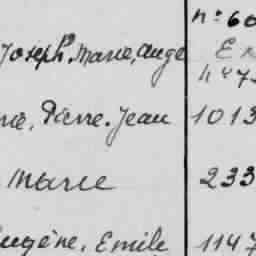 n: 60
Joseph, Marie, Ange
Pierre. Jean 1013
Marie 233
Eugène, Emile 1147